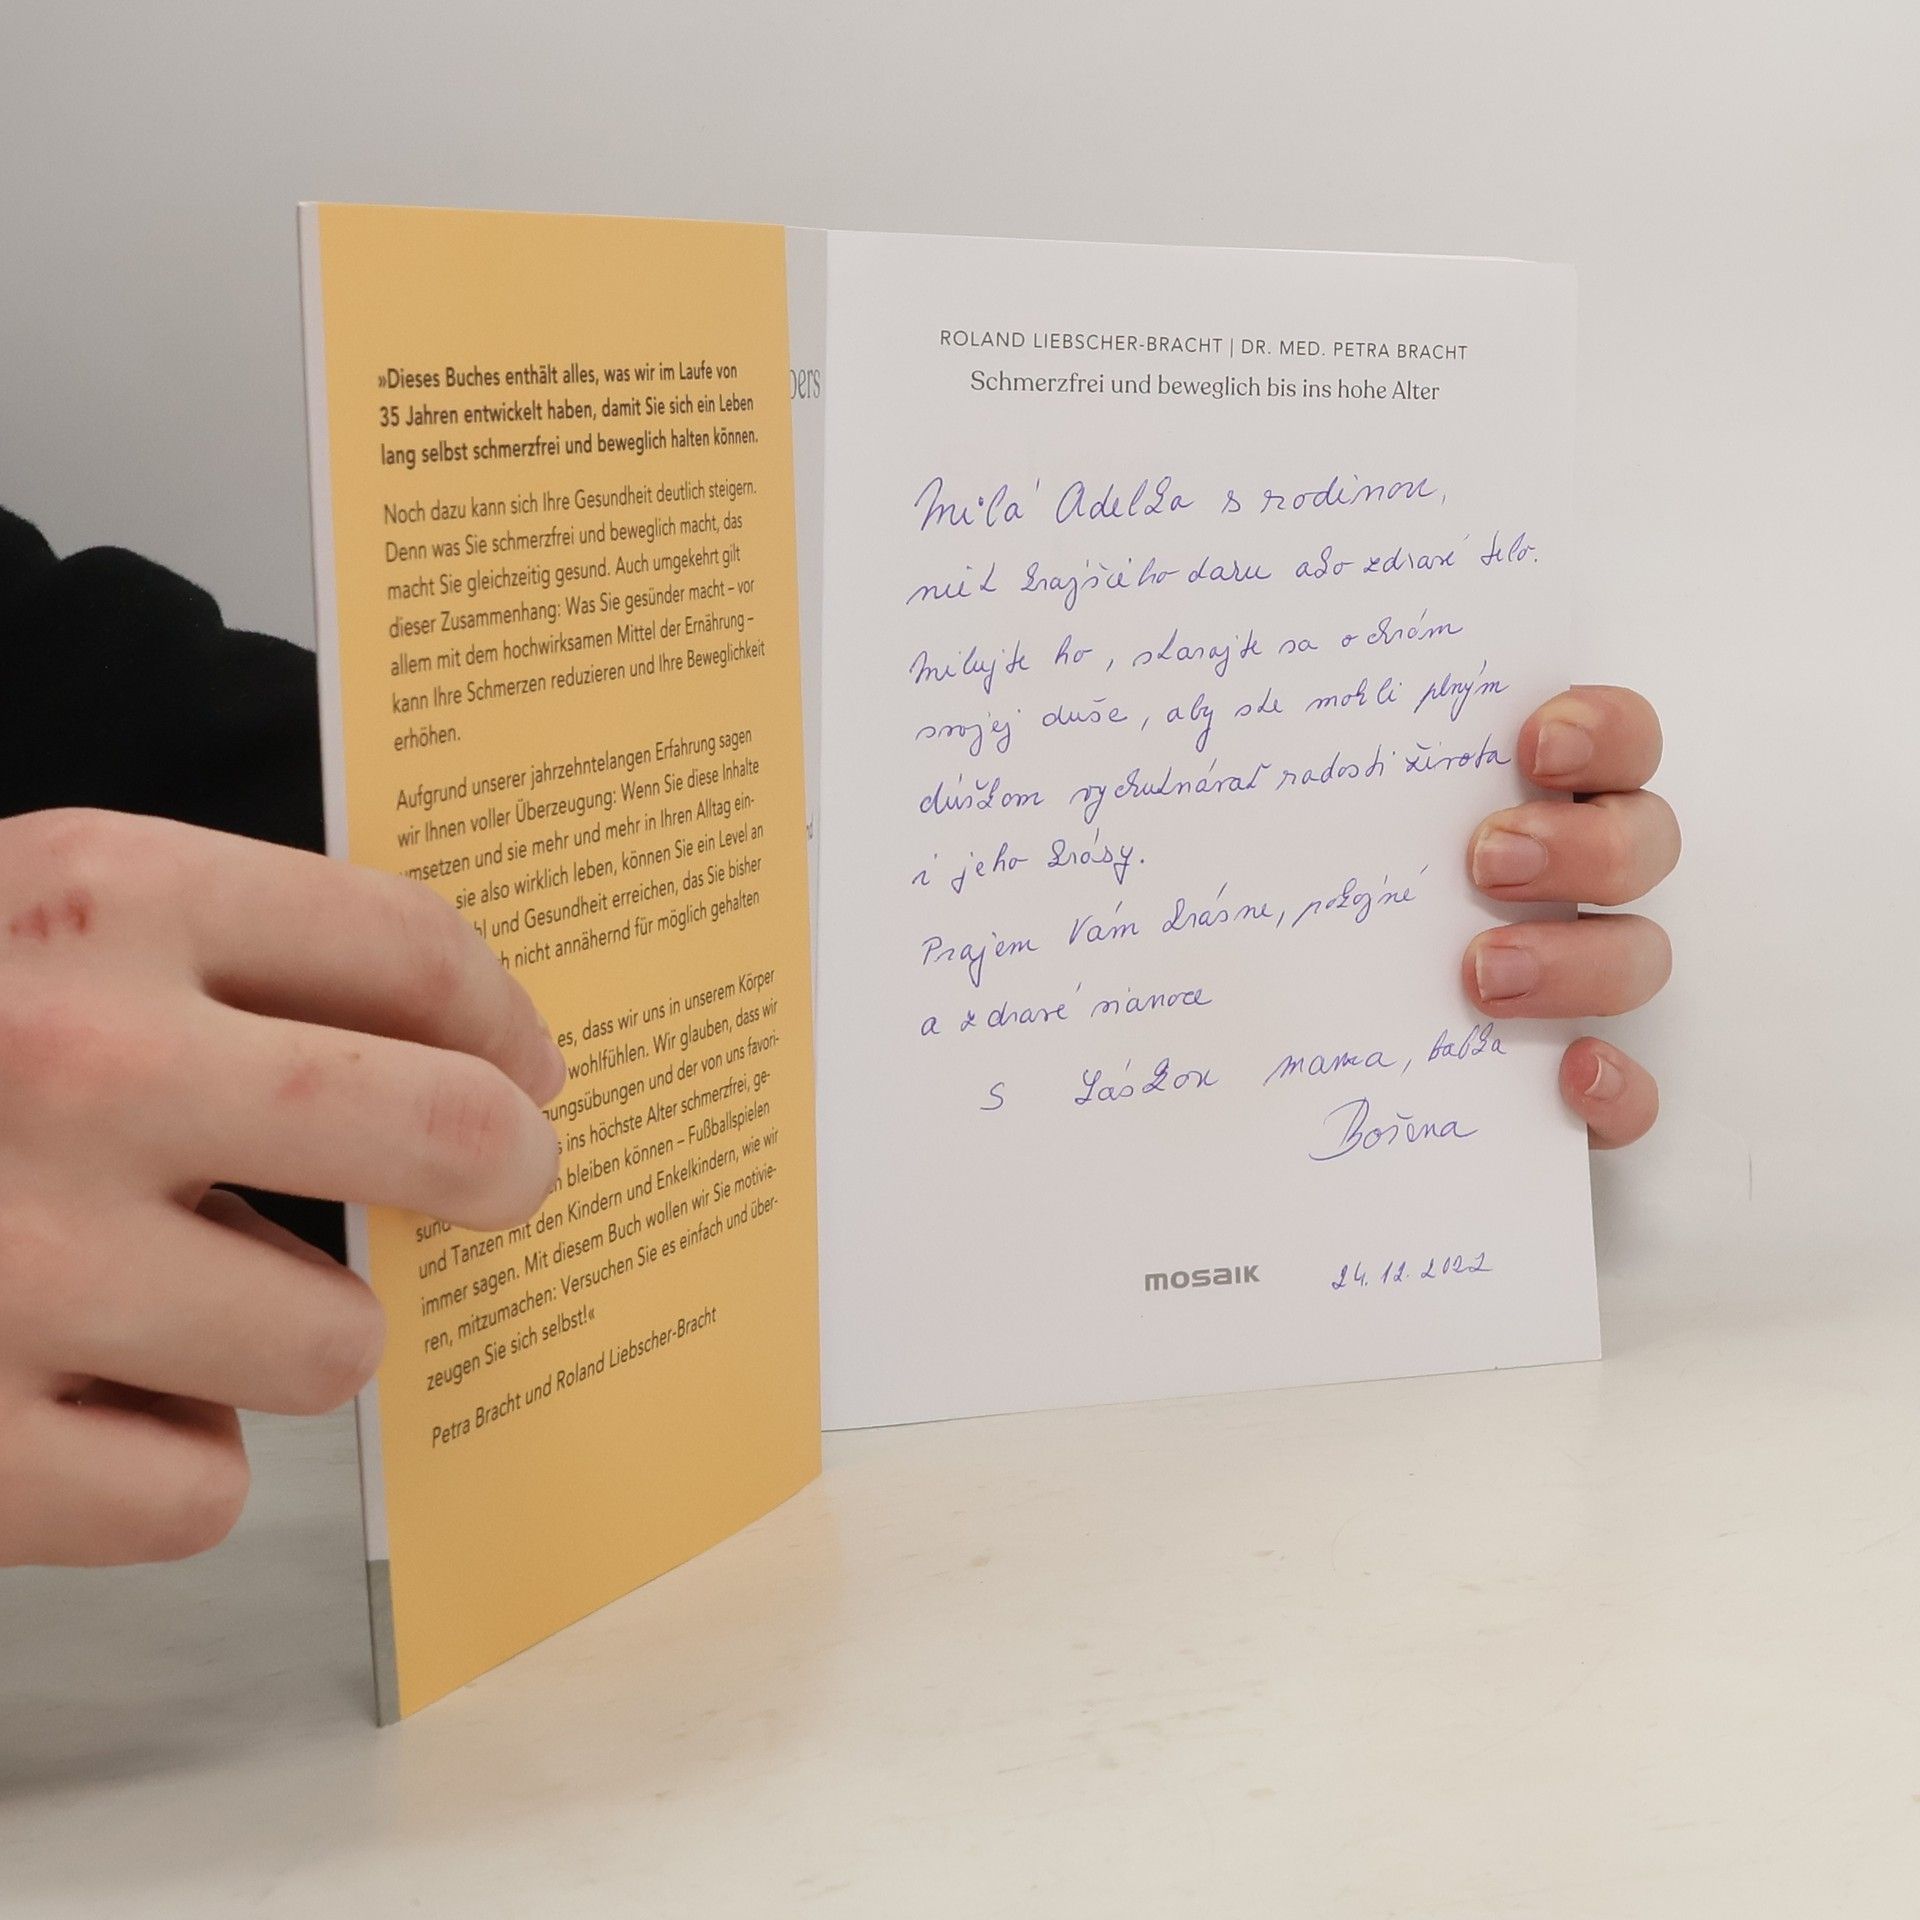 »Dieses Buches enthält alles, was wir im Laufe von
35 Jahren entwickelt haben, damit Sie sich ein Leben
lang selbst schmerzfrei und beweglich halten können.
Noch dazu kann sich Ihre Gesundheit deutlich steigern.
Denn was Sie schmerzfrei und beweglich macht, das
macht Sie gleichzeitig gesund. Auch umgekehrt gilt
dieser Zusammenhang: Was Sie gesünder macht – vor
allem mit dem hochwirksamen Mittel der Ernährung –
kann Ihre Schmerzen reduzieren und Ihre Beweglichkeit
erhöhen.
Aufgrund unserer jahrzehntelangen Erfahrung sagen
wir Ihnen voller Überzeugung: Wenn Sie diese Inhalte
umsetzen und sie mehr und mehr in Ihren Alltag ein-
sie also wirklich leben, können Sie ein Level an
und Gesundheit erreichen, das Sie bisher
nicht annähernd für möglich gehalten
es, dass wir uns in unserem Körper
wohlfühlen. Wir glauben, dass wir
gungsübungen und der von uns favori-
ins höchste Alter schmerzfrei, ge-
bleiben können – Fußballspielen
und Tanzen mit den Kindern und Enkelkindern, wie wir
immer sagen. Mit diesem Buch wollen wir Sie motivie-
ren, mitzumachen: Versuchen Sie es einfach und über-
zeugen Sie sich selbst!«
Petra Bracht und Roland Liebscher-Bracht
ROLAND LIEBSCHER-BRACHT | DR. MED. PETRA BRACHT
Schmerzfrei und beweglich bis ins hohe Alter
Milá Adelka s rodinou,
niet krajšieho daru ako zdravé telo.
Milujte ho, starajte sa o chrám
svojej duše, aby ste mohli plným
dúškom vychutnávať radosti života
i jeho krásy.
Prajem Vám krásne, pokojné
a zdravé vianoce
S láskou mama, babka
Božena
mosaik
24.12.2022